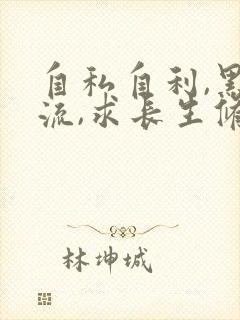 自私自利,黑
流,求长生修
林坤城